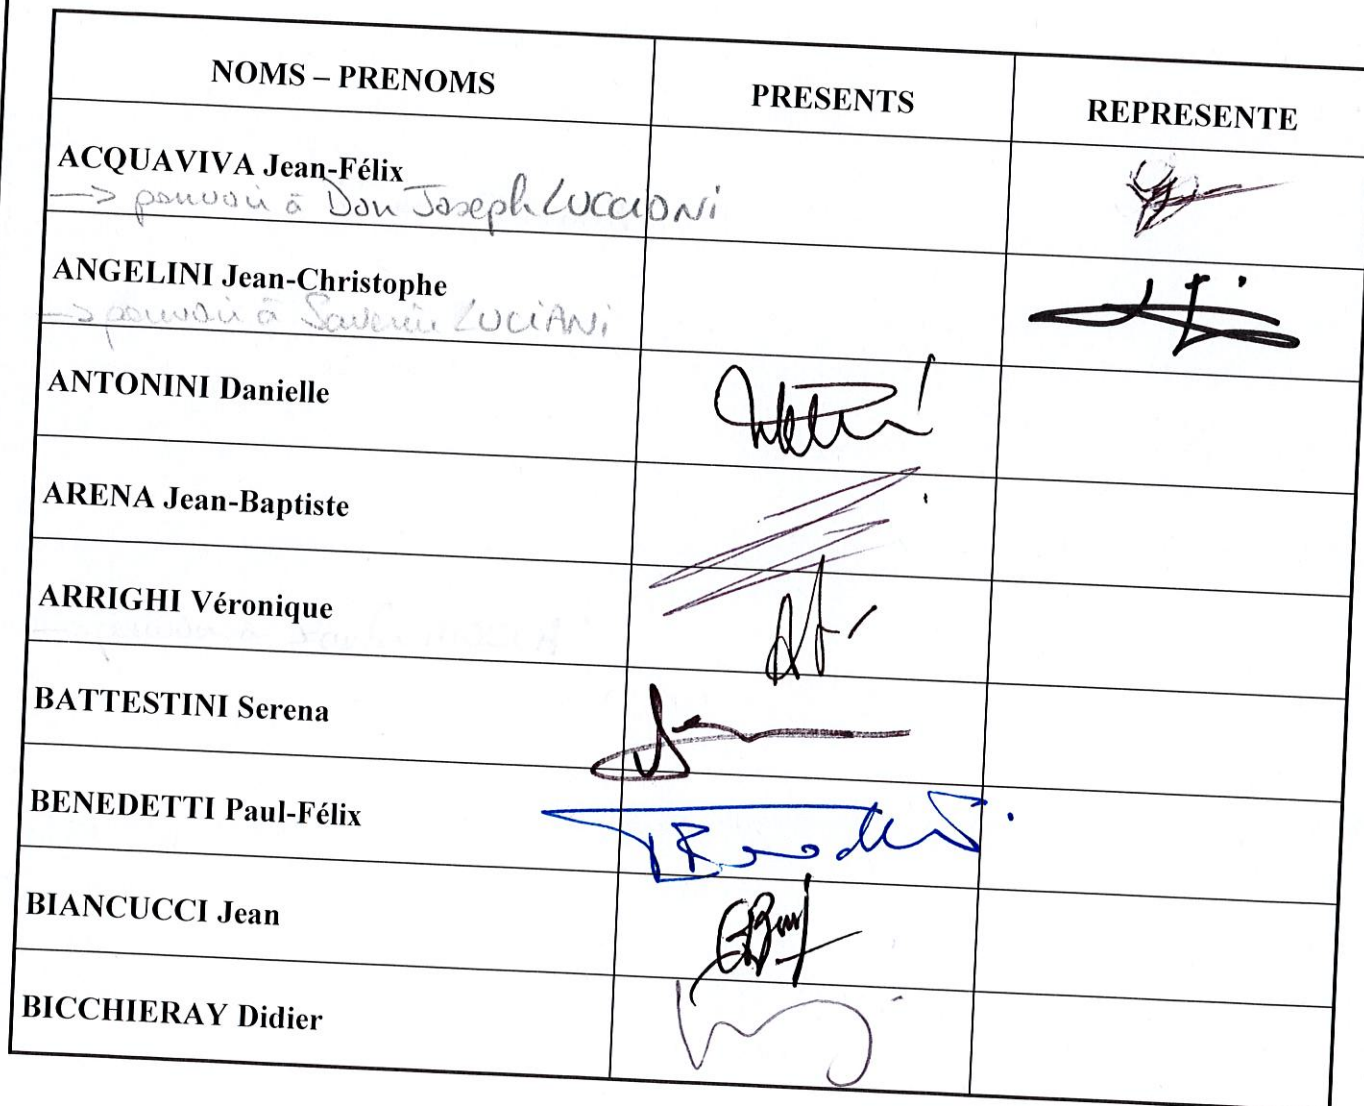 NOMS – PRENOMS PRESENTS REPRESENTE
ACQUAVIVA Jean-Félix
—> pouvoir à Don Joseph LUCCIONI
ANGELINI Jean-Christophe
—> pouvoir à Saveriu LUCIANI
ANTONINI Danielle
ARENA Jean-Baptiste
ARRIGHI Véronique
BATTESTINI Serena
BENEDETTI Paul-Félix
BIANCUCCI Jean
BICCHIERAY Didier